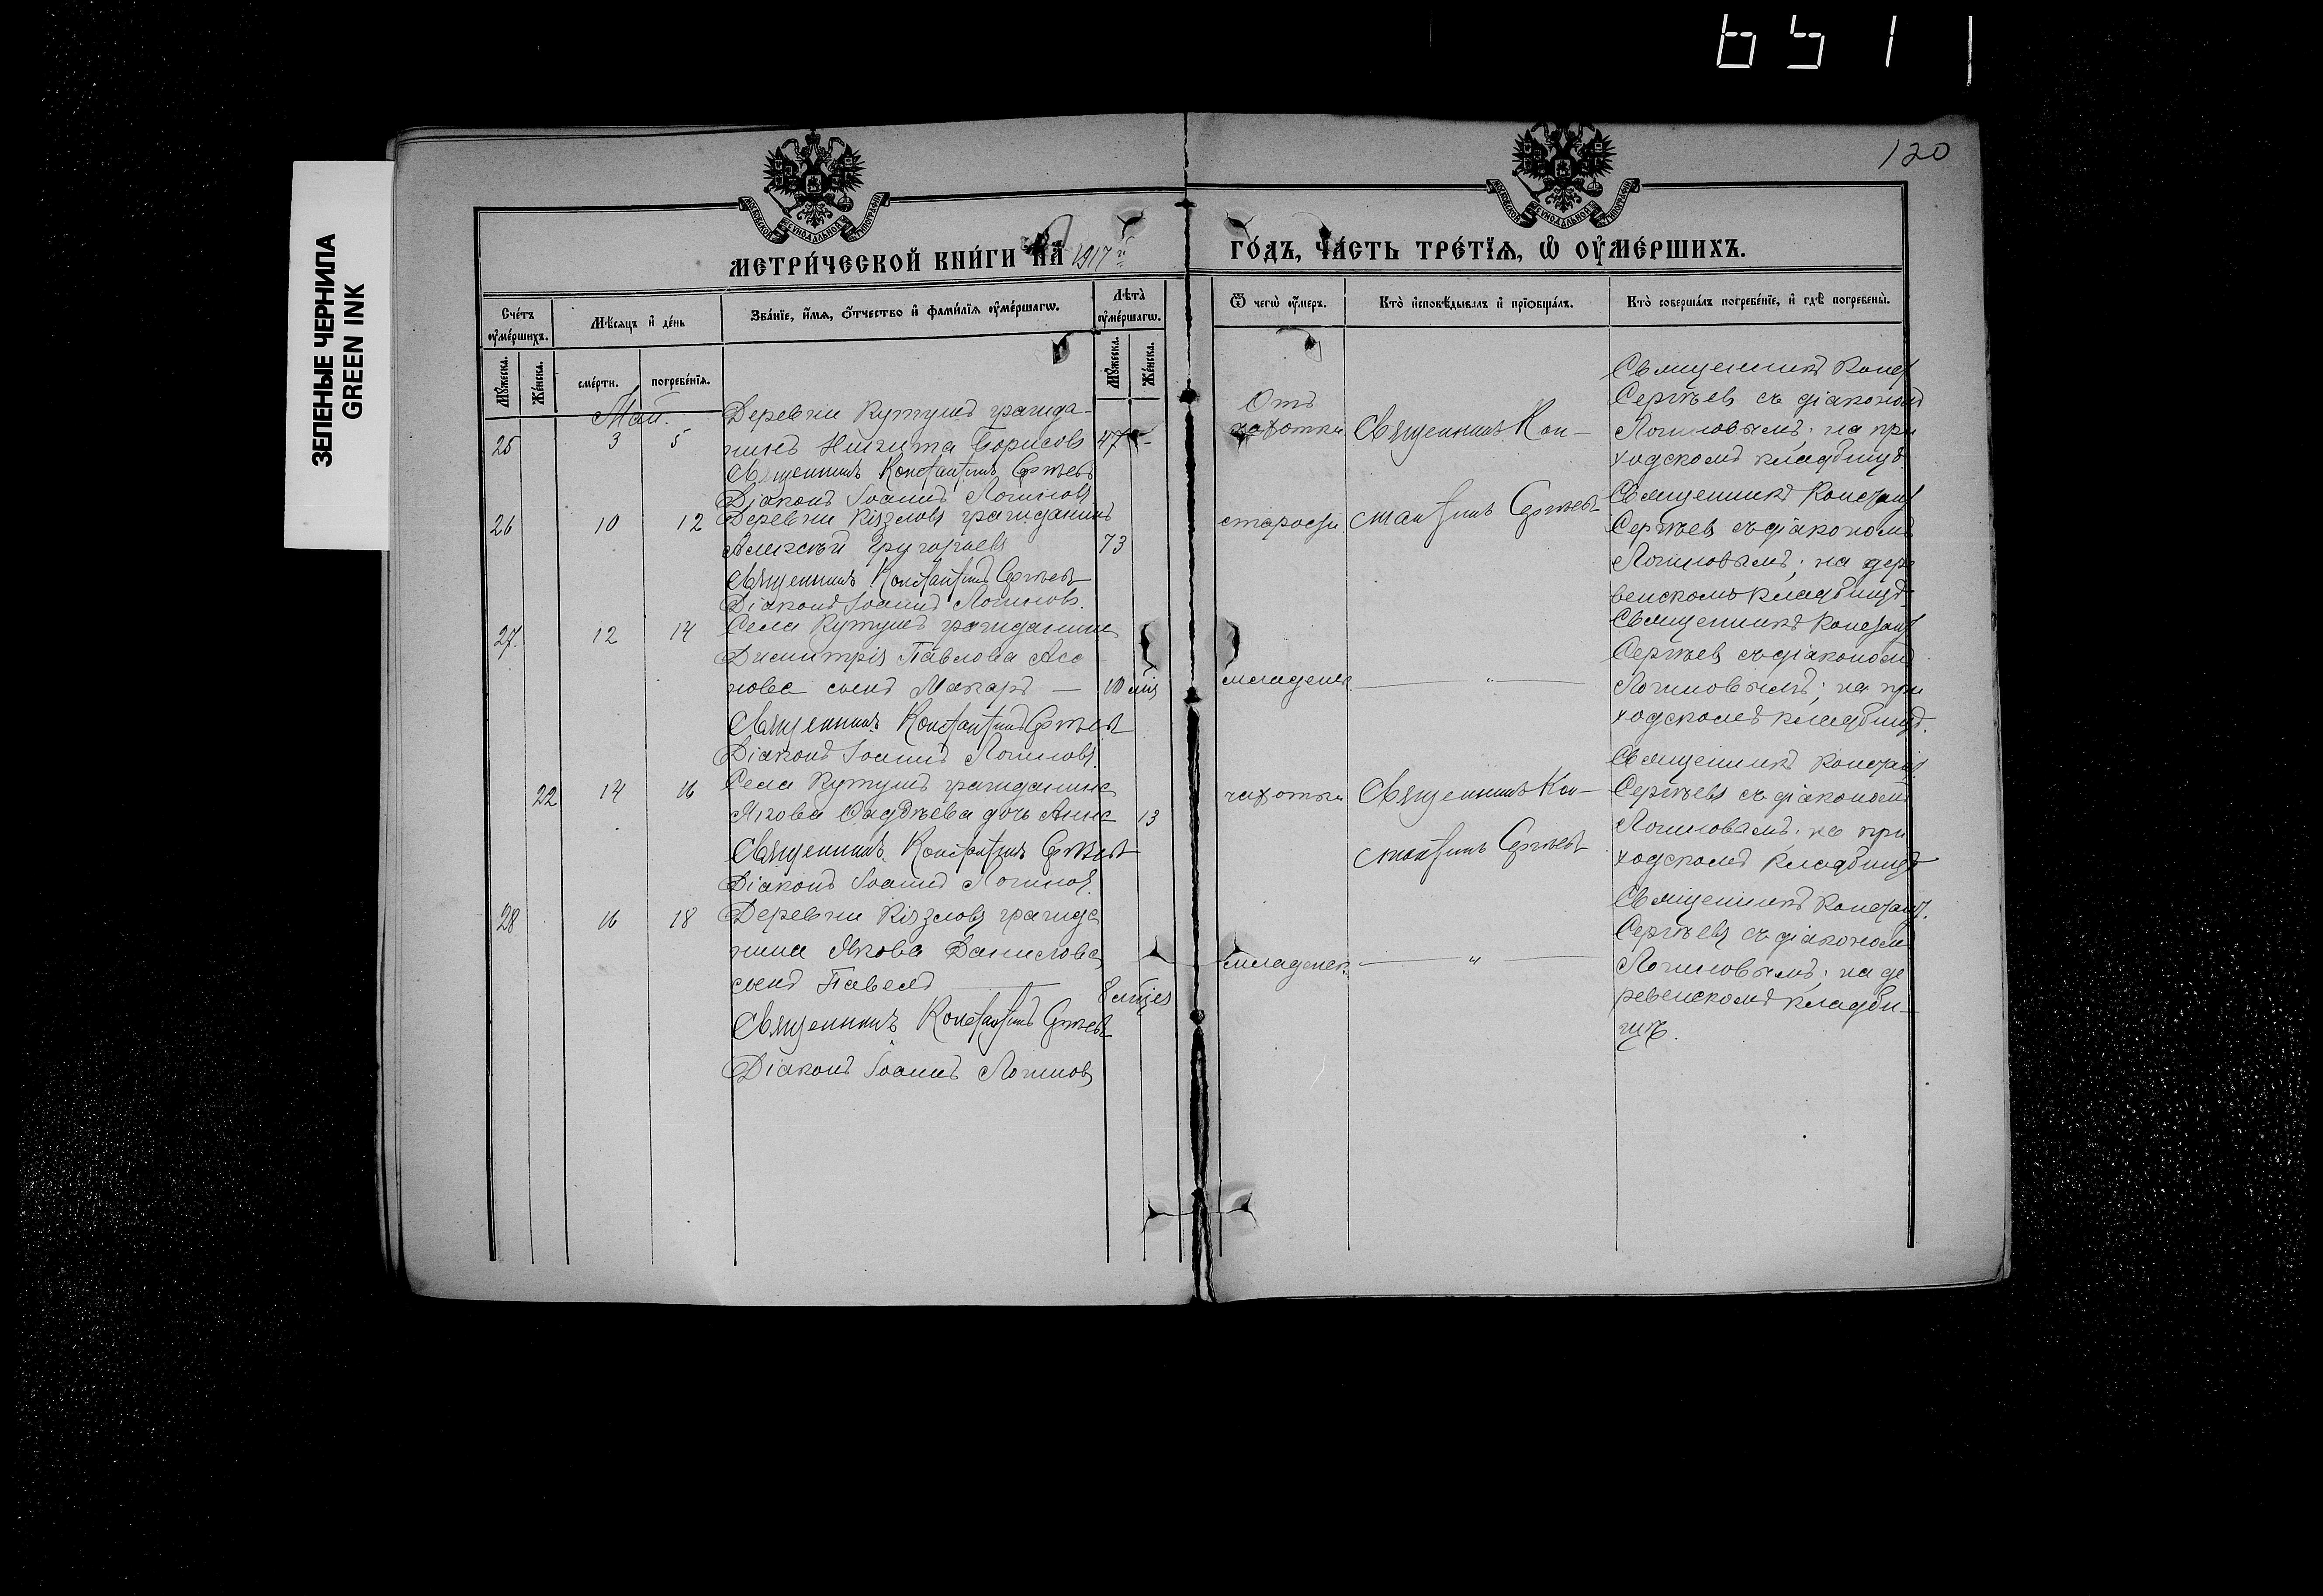 6511
120
ЗЕЛЕНЫЕ ЧЕРНИЛА
GREEN INK
МЕТРИ́ЧЕСКОЙ КНИ́ГИ НА̀ 1917 й
ГО́ДЪ, ЧА́СТЬ ТРЕ́ТЇѦ, Ѡ҆ ОУ҆МЕ́РШИХЪ.
Сче́тъ оу҆ме́ршихъ.
Мѣ́сѧцъ и҆ де́нь
Зва́нїе, и҆́мѧ, ѻ҆́тчество и҆ фами́лїѧ оу҆ме́ршагѡ.
Лѣта̀ оу҆ме́ршагѡ.
Ѿ чегѡ̀ оу҆́меръ.
Кто̀ и҆сповѣ́дывалъ и҆ прїѡбща́лъ.
Кто̀ соверша́лъ погребе́нїе, и҆ гдѣ̀ погребены̀.
Мꙋ́жеска.
Же́нска.
сме́рти.
погребе́нїѧ.
Мꙋ́жеска.
Же́нска.
Май.
25 3 5
Деревни Кутушъ гражда-
нинъ Никита Борисовъ 47 -
Священникъ Константинъ Сергѣевъ
Діаконъ Іоаннъ Логиновъ.
Отъ
чахотки
Священникъ Кон-
стантинъ Сергѣевъ
Священникъ Конст
Сергѣевъ съ діакономъ
Логиновымъ; на при
ходскомъ кладбищѣ.
26 10 12
Деревни гражданинъ
Алексѣй Григорьевъ 73
Священникъ Константинъ Сергѣевъ
Діаконъ Іоаннъ Логиновъ.
старости
Священникъ Констант
Сергѣевъ съ діакономъ
Логиновымъ; на дер
венскомъ кладбищѣ.
27. 12 14
Села Кутушъ гражданина
Димитрія Павлова
сынъ Макаръ — 10
Священникъ Константинъ Сергѣевъ
Діаконъ Іоаннъ Логиновъ.
младенч. — " —
Священникъ Констант
Сергѣевъ съ діакономъ
Логиновымъ; на при
ходскомъ кладбищѣ.
22 14 16
Села Кутушъ гражданина
Якова Фаддѣева дочь Анна 13
Священникъ Константинъ Сергѣевъ
Діаконъ Іоаннъ Логиновъ.
чахотки
Священникъ Кон-
стантинъ Сергѣевъ
Священникъ Констант
Сергѣевъ съ діакономъ
Логиновымъ; на при
ходскомъ кладбищѣ
28 16 18
Деревни гражда
нина Якова Данилова
сынъ Павелъ 8
Священникъ Константинъ Сергѣевъ
Діаконъ Іоаннъ Логиновъ
младенч. — " —
Священникъ Констант.
Сергѣевъ съ діакономъ
Логиновымъ; на де
ревенскомъ кладби-
щѣ.